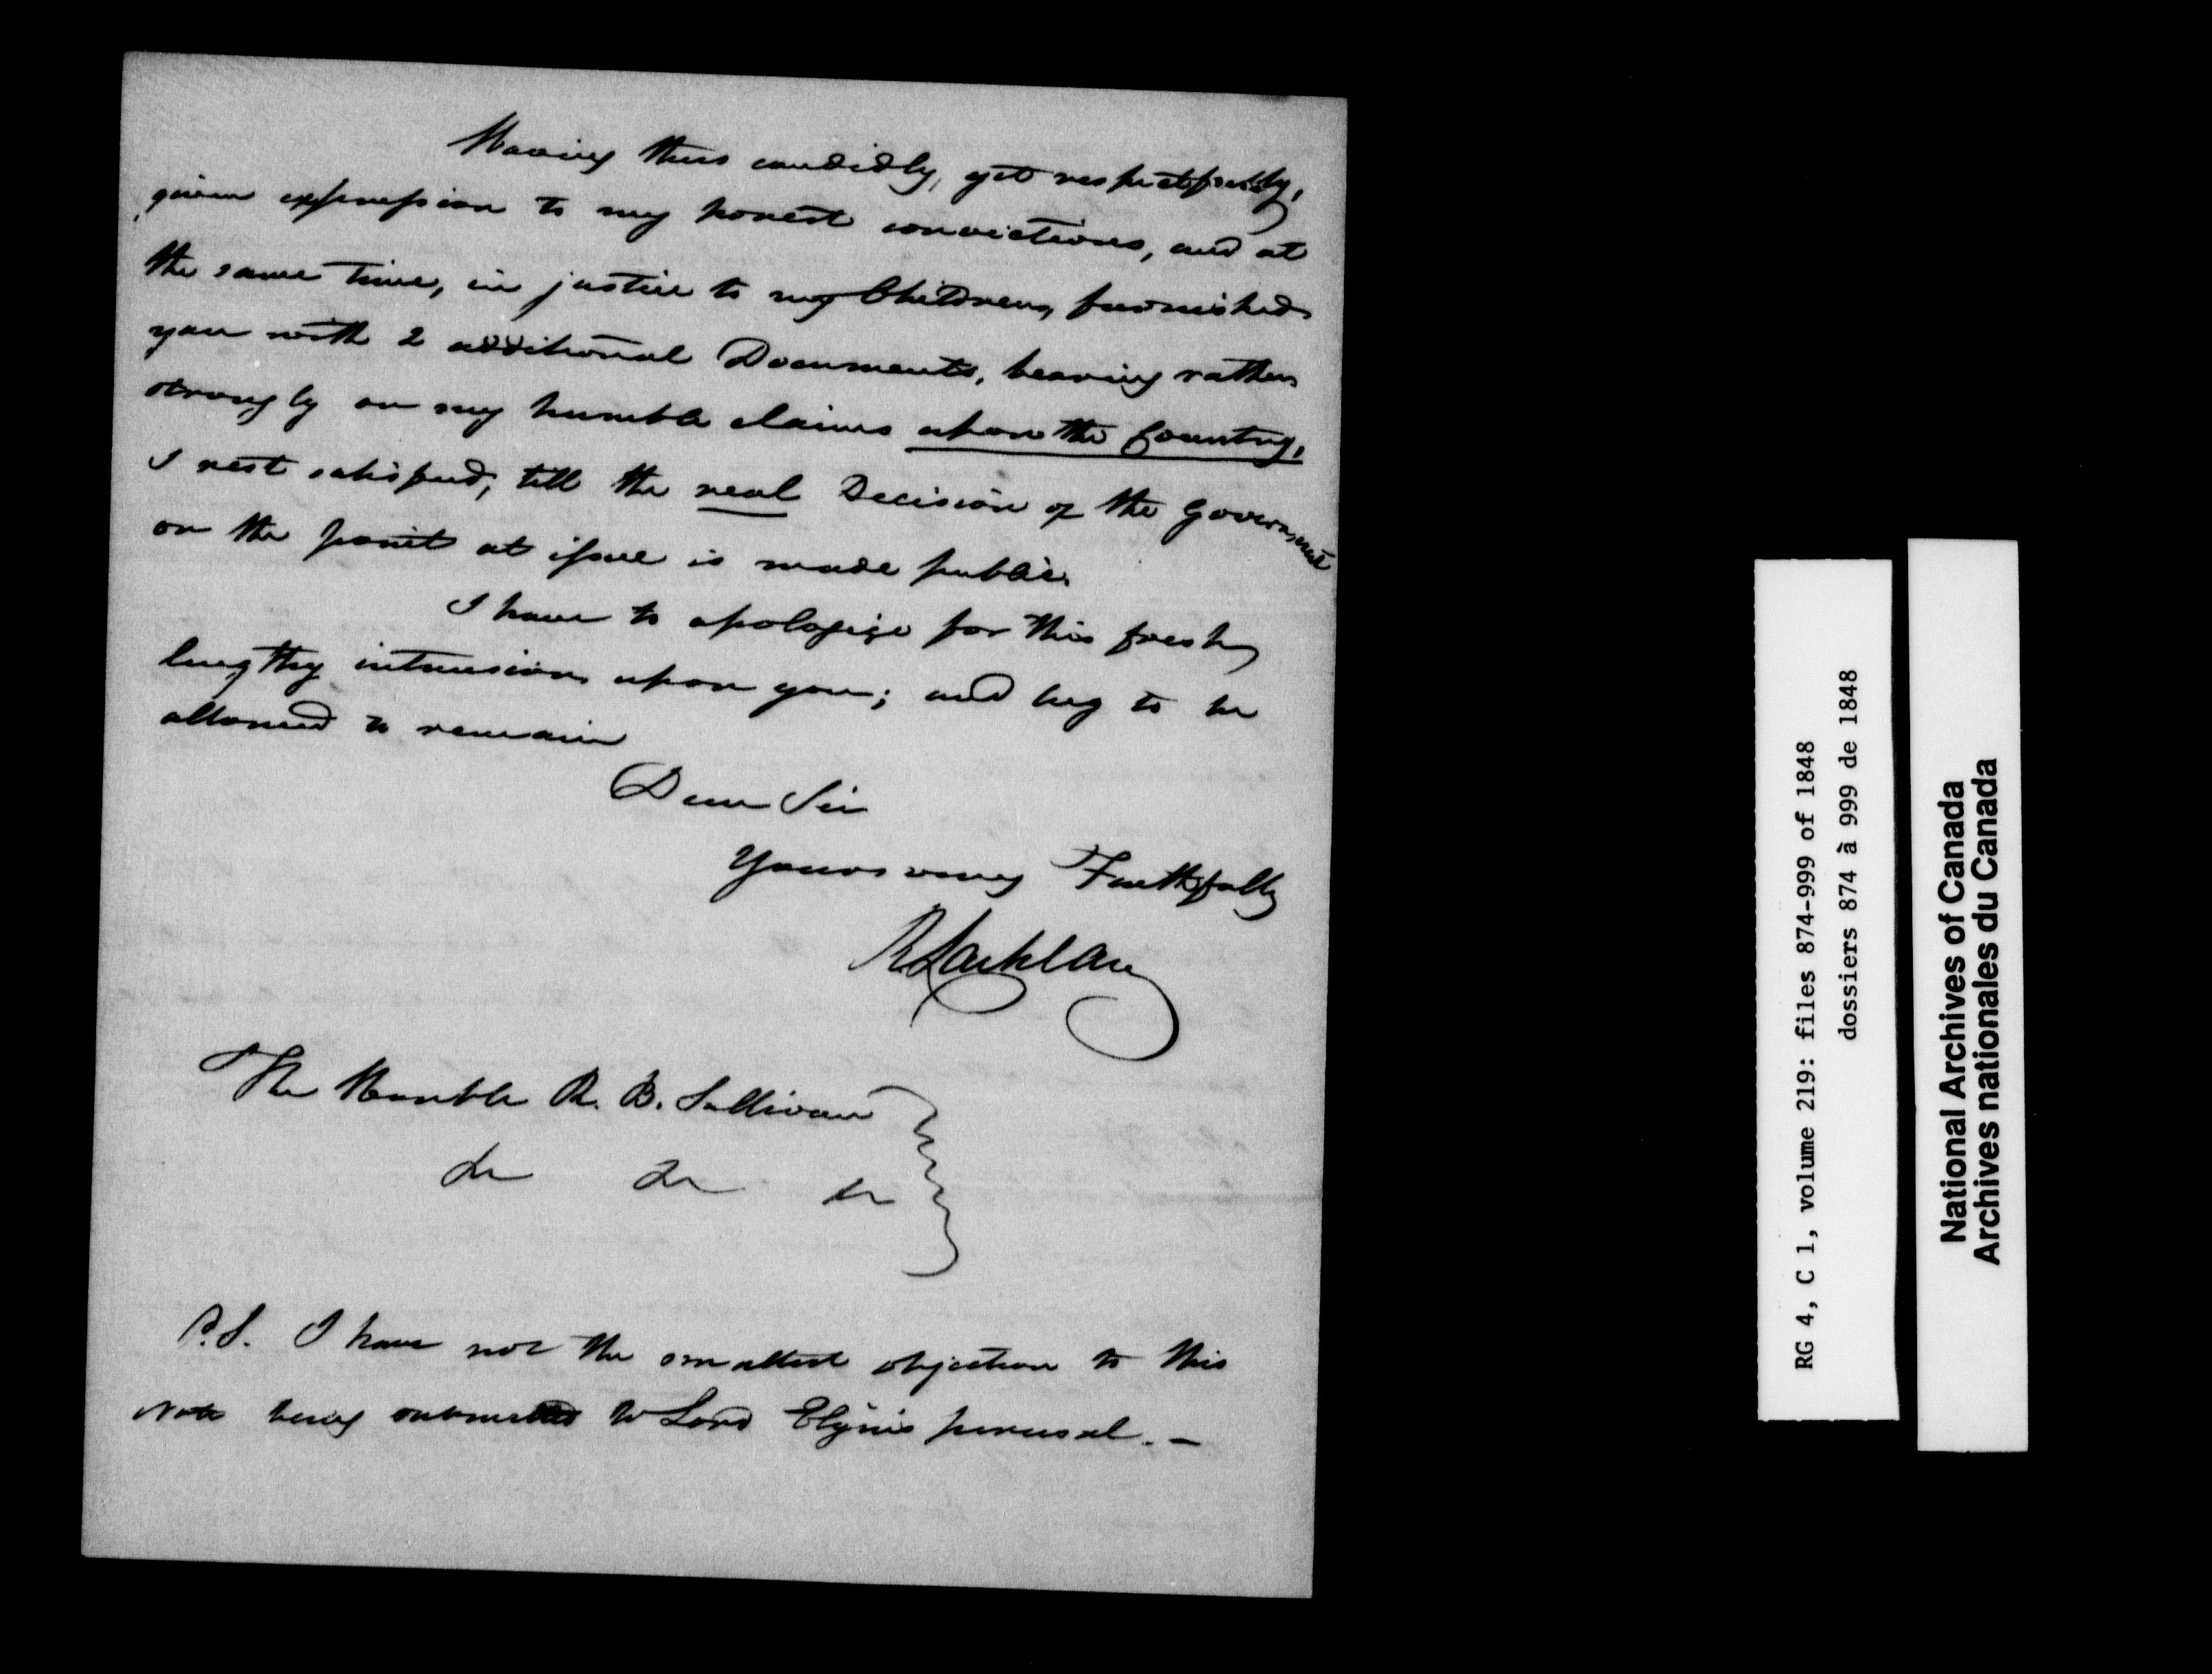 Having thus candidly, yet respectfully,
given expression to my honest convictions, and at
the same time, in justice to my Children, furnished
you with 2 additional Documents, bearing rather
strongly on my humble claims upon the Country,
I rest satisfied, till the real Decision of the Government
on the point at issue is made public.
I have to apologize for this fresh
lengthy intrusion upon you; and beg to be
allowed to remain
Dear Sir
Yours very Faithfully
R Lachlan
The Honble R. B. Sullivan
&c &c &c
P.S. I have not the smallest objection to this
Note being submitted to Lord Elgin's perusal. —
RG 4, C 1, volume 219: files 874-999 of 1848
dossiers 874 à 999 de 1848
National Archives of Canada
Archives nationales du Canada